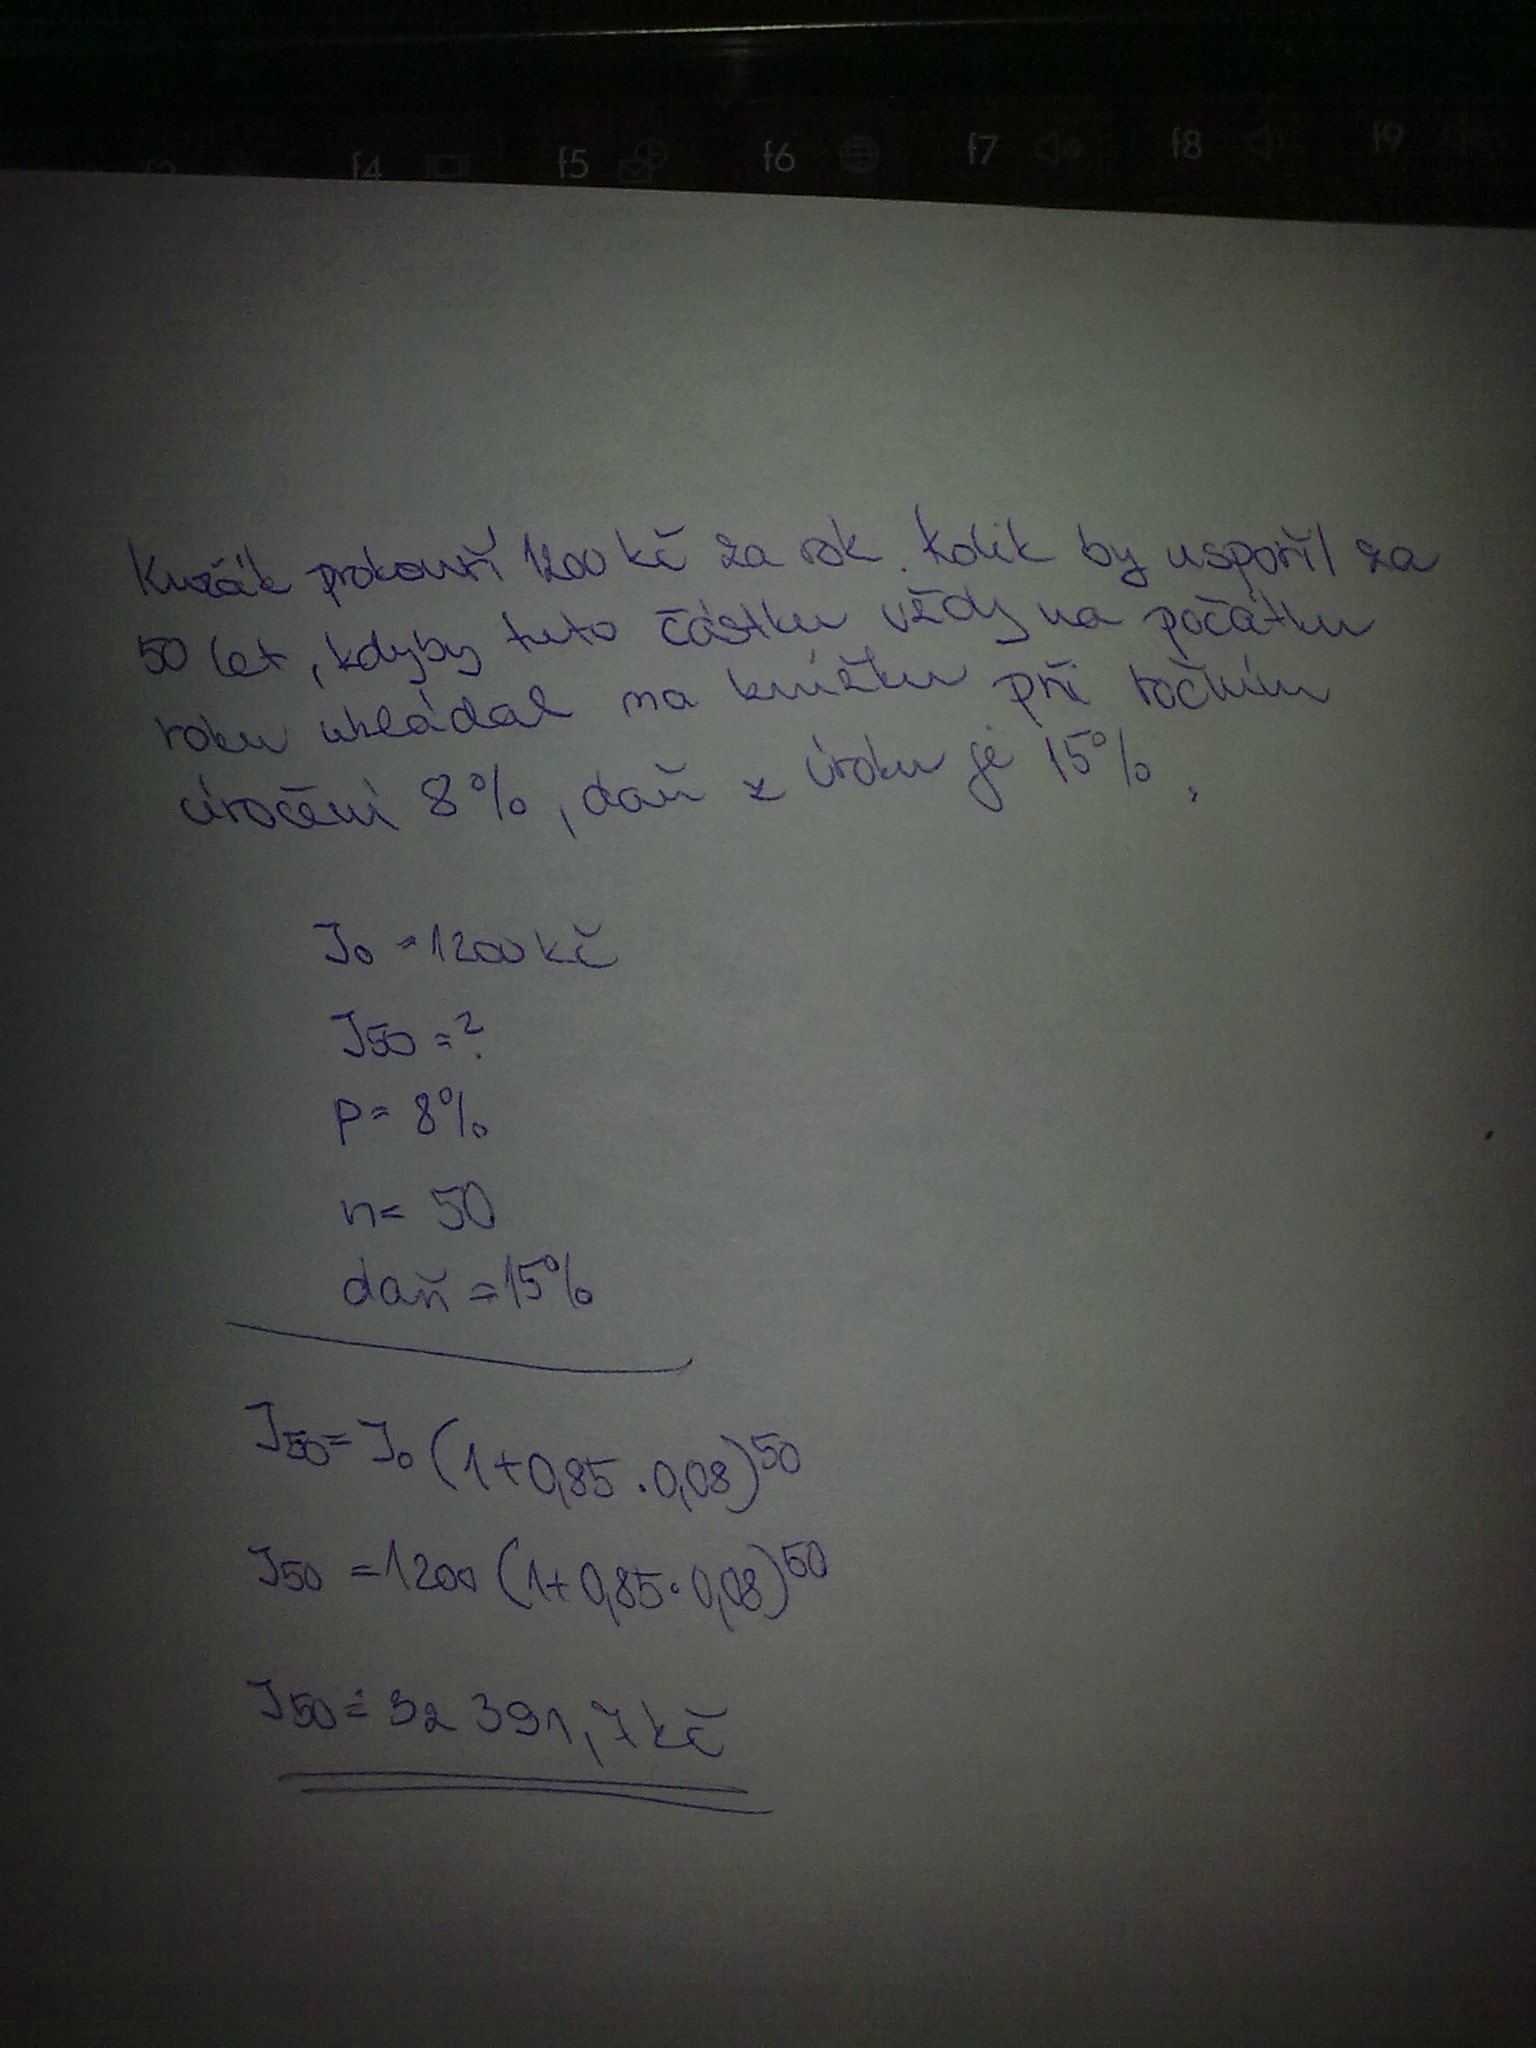 f3 f4 f5 f6 f7 f8 f9
Kuřák prokouří 1200 kč za rok. Kolik by uspořil za
50 let, kdyby tuto částku vždy na počátku
roku ukládal na knížku při ročním
úročení 8%, daň z úroku je 15%.
J0 = 1200 kč
J50 = ?
p = 8%
n = 50
daň = 15%
J50 = J0 (1+0,85 . 0,08)^50
J50 = 1200 (1+0,85 . 0,08)^50
J50 ≐ 32 391,7 kč